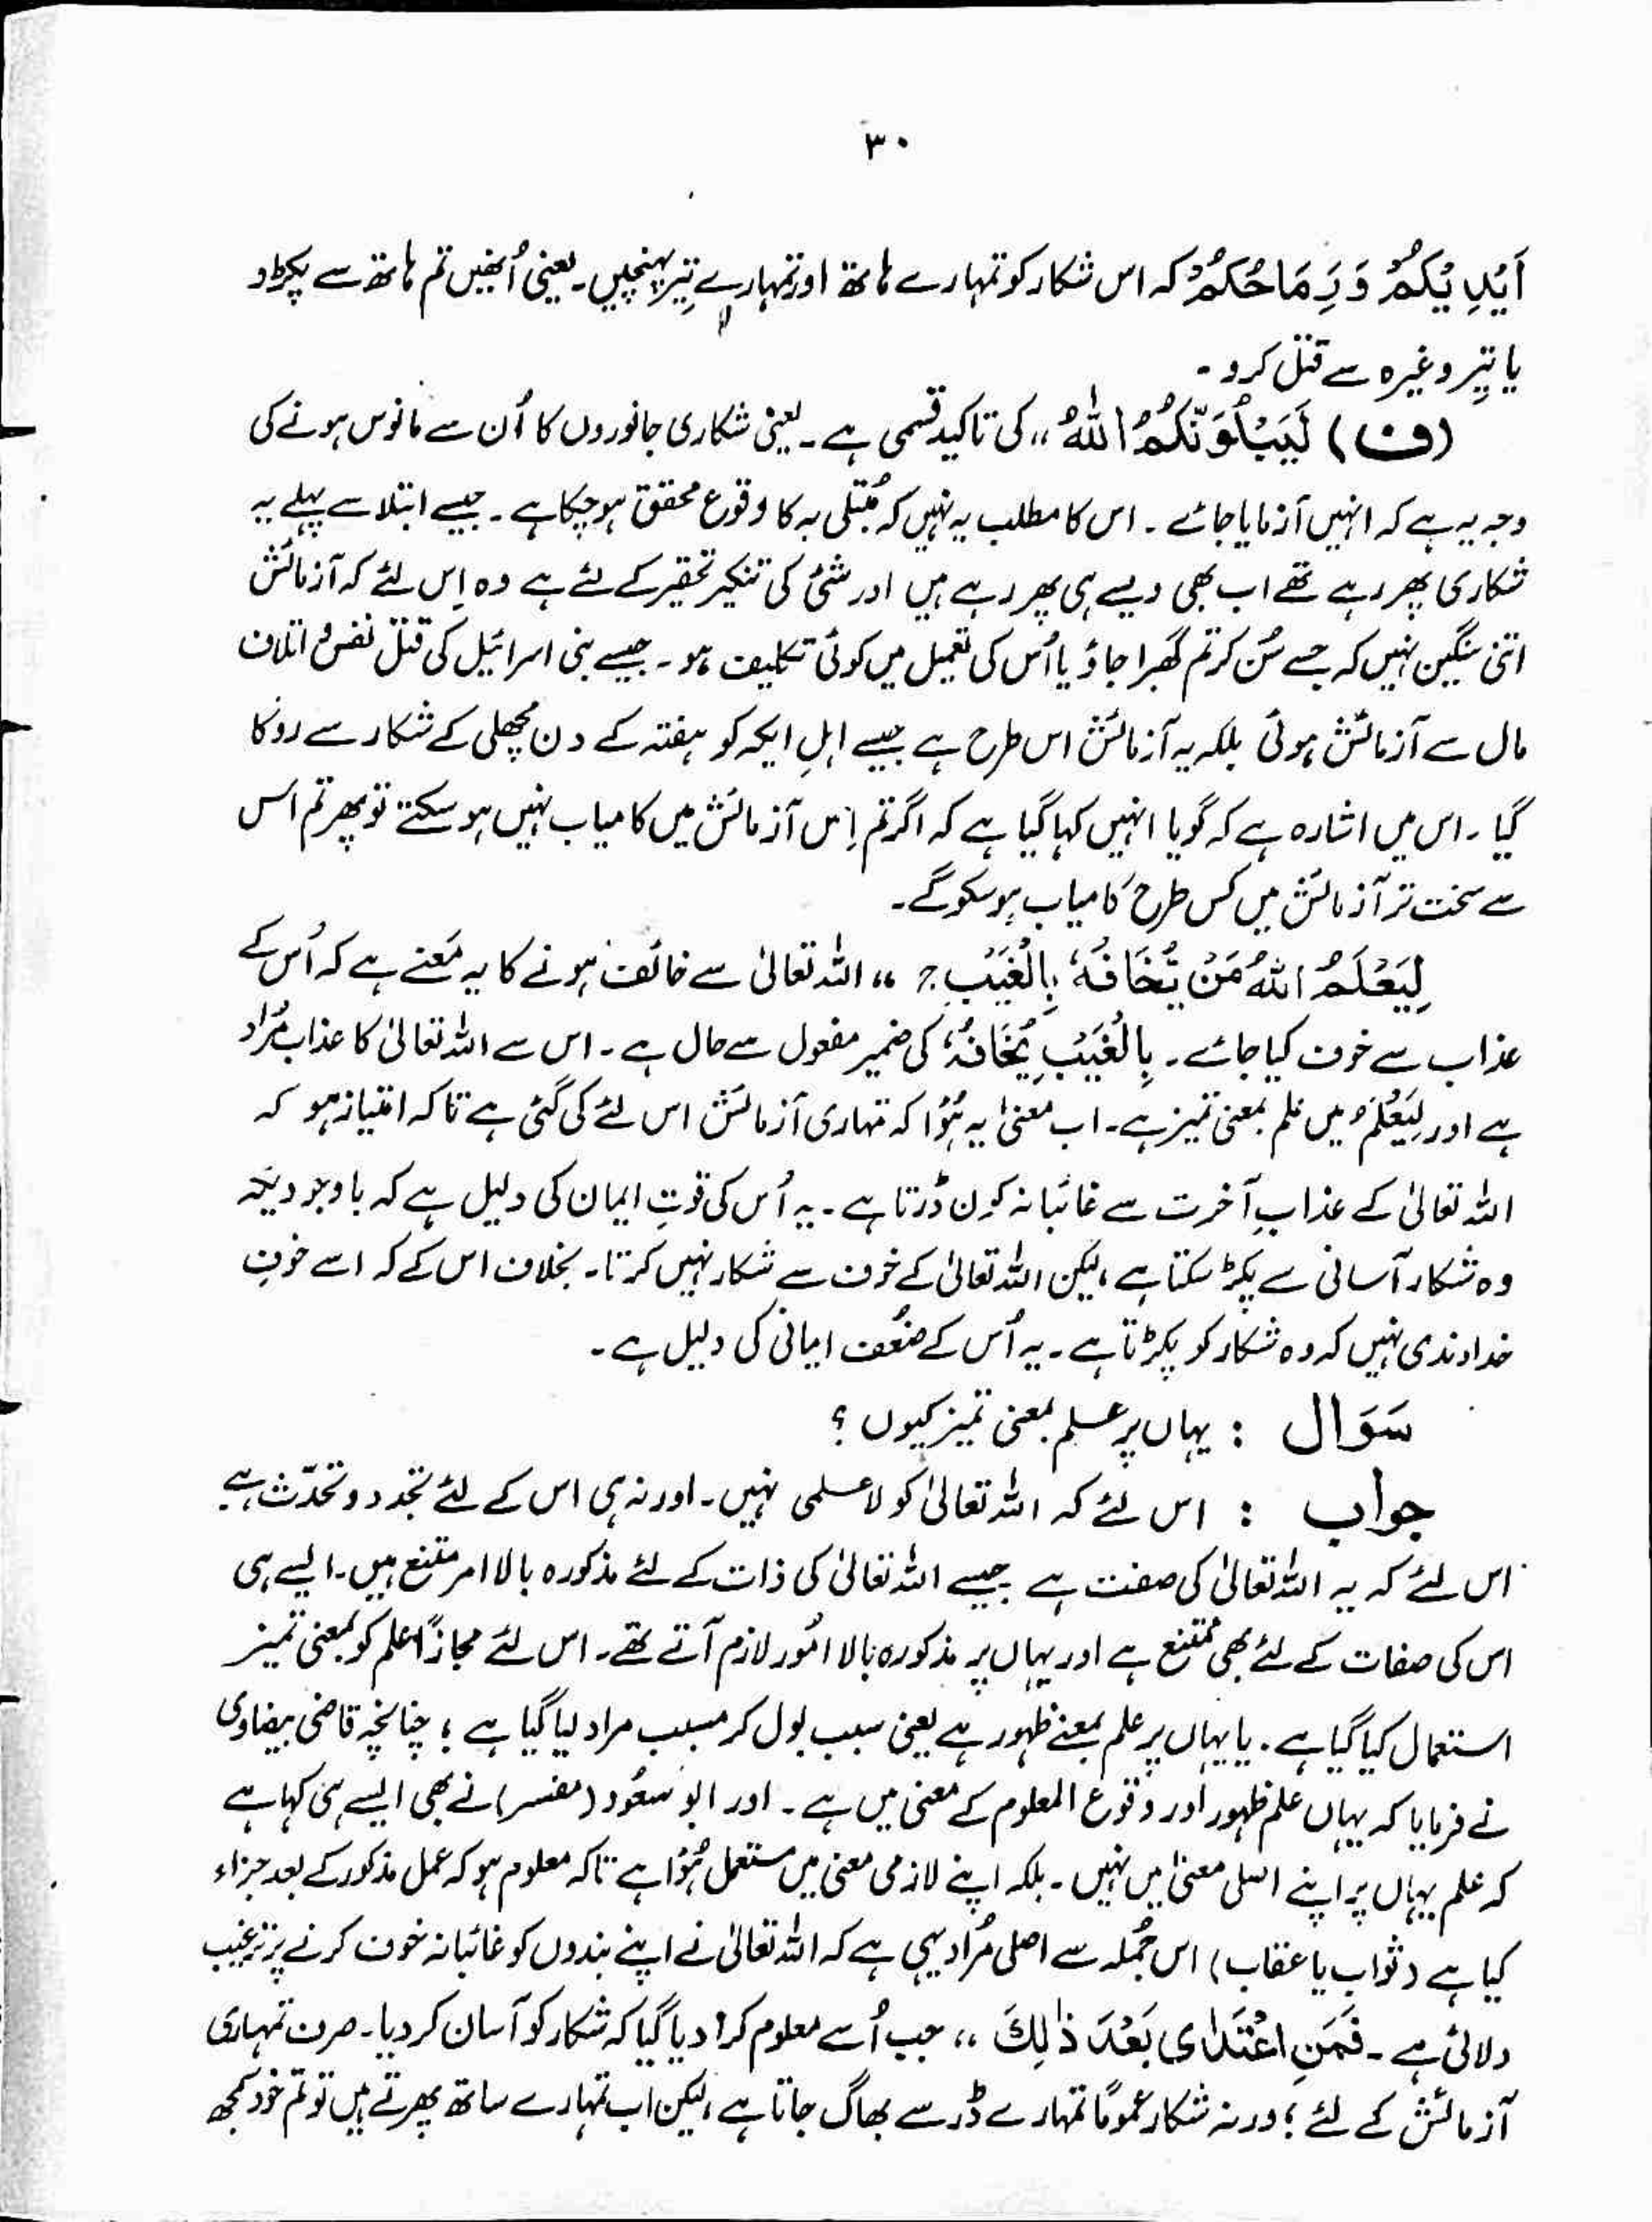 ۳۰
اَیْدِیْکُمْ وَرِمَاحُکُمْ کہ اس شکار کو تمہارے ہاتھ اور تمہارے تیر پہنچیں۔ یعنی اُنھیں تم ہاتھ سے پکڑو
یا تیِر وغیرہ سے قتل کرو۔
(ف) لَیَبْلُوَنَّکُمُ اللّٰهُ ،، کی تاکید قسمی ہے۔ یعنی شکاری جانوروں کا اُن سے مانوس ہونے کی
وجہ یہ ہے کہ انہیں آزمایا جائے۔ اس کا مطلب یہ نہیں کہ مُبتلی بہ کا وقوع محقق ہوچکا ہے۔ جیسے ابتلا سے پہلے یہ
شکاری پھر رہے تھے اب بھی ویسے ہی پھر رہے ہیں اور شئ کی تنکیر تحقیر کے لئے ہے وہ اِس لئے کہ آزمائش
اتنی سنگین نہیں کہ جسے سُن کر تم گھبرا جاؤ یا اُس کی تعمیل میں کوئی تکلیف ہو۔ جیسے بنی اسرائیل کی قتل نفس و اتلاف
مال سے آزمائش ہوئی بلکہ یہ آزمائش اس طرح ہے جیسے اہلِ ایکہ کو ہفتہ کے دن مچھلی کے شکار سے روکا
گیا۔ اس میں اشارہ ہے کہ گویا انہیں کہا گیا ہے کہ اگر تم اِس آزمائش میں کامیاب نہیں ہو سکتے تو پھر تم اس
سے سخت تر آزمائش میں کس طرح کامیاب ہو سکو گے۔
لِیَعْلَمَ اللّٰهُ مَنْ یَّخَافُهٗ بِالْغَیْبِ ج ،، اللہ تعالیٰ سے خائف ہونے کا یہ مَعنے ہے کہ اُس کے
عذاب سے خوف کیا جائے۔ بِالْغَیْبِ یَخَافُهٗ کی ضمیر مفعول سے حال ہے۔ اس سے اللہ تعالیٰ کا عذاب مُراد
ہے اور لِیَعْلَمَ میں علم بمعنی تمیز ہے۔ اب معنیٰ یہ ہُوَا کہ تمہاری آزمائش اس لئے کی گئی ہے تاکہ امتیاز ہو کہ
اللہ تعالیٰ کے عذابِ آخرت سے غائبانہ کون ڈرتا ہے۔ یہ اُس کی قوتِ ایمان کی دلیل ہے کہ باوجودیکہ
وہ شکار آسانی سے پکڑ سکتا ہے ،لیکن اللہ تعالیٰ کے خوف سے شکار نہیں کرتا۔ بخلاف اس کے کہ اسے خوفِ
خداوندی نہیں کہ وہ شکار کو پکڑتا ہے۔ یہ اُس کے ضعُف ایمانی کی دلیل ہے۔
سَوَال : یہاں پر علم بمعنی تمیز کیوں ؟
جواب : اس لئے کہ اللہ تعالیٰ کو لاعلمی نہیں۔ اور نہ ہی اس کے لئے تجدد و تحدّث ہے
اس لئے کہ یہ اللہ تعالیٰ کی صفت ہے جیسے اللہ تعالیٰ کی ذات کے لئے مذکورہ بالا امر ممتنع ہیں۔ ایسے ہی
اس کی صفات کے لئے بھی ممتنع ہے اور یہاں پر مذکورہ بالا امُور لازم آتے تھے۔ اس لئے مجازًا علم کو بمعنی تمیز
استعمال کیا گیا ہے۔ یا یہاں پر علم بمعنے ظہور ہے یعنی سبب بول کر مسبب مراد لیا گیا ہے ؛ چنانچہ قاضی بیضاوی
نے فرمایا کہ یہاں علم ظہور اور وقوع المعلوم کے معنی میں ہے۔ اور ابو سعُود (مفسر) نے بھی ایسے ہی کہا ہے
کہ علم یہاں پر اپنے اصلی معنیٰ میں نہیں۔ بلکہ اپنے لازمی معنی میں مستعمل ہُوَا ہے تاکہ معلوم ہو کہ عمل مذکور کے بعد جزاء
کیا ہے (ثواب یا عقاب) اس جُملہ سے اصلی مُراد یہی ہے کہ اللہ تعالیٰ نے اپنے بندوں کو غائبانہ خوف کرنے پر ترغیب
دلائی ہے۔ فَمَنِ اعْتَدٰی بَعْدَ ذٰلِکَ ،، جب اُسے معلوم کرا دیا گیا کہ شکار کو آسان کر دیا۔ صرف تمہاری
آزمائش کے لئے ؛ ورنہ شکار عمومًا تمہارے ڈر سے بھاگ جاتا ہے ،لیکن اب تمہارے ساتھ پھرتے ہیں تو تم خود سمجھ